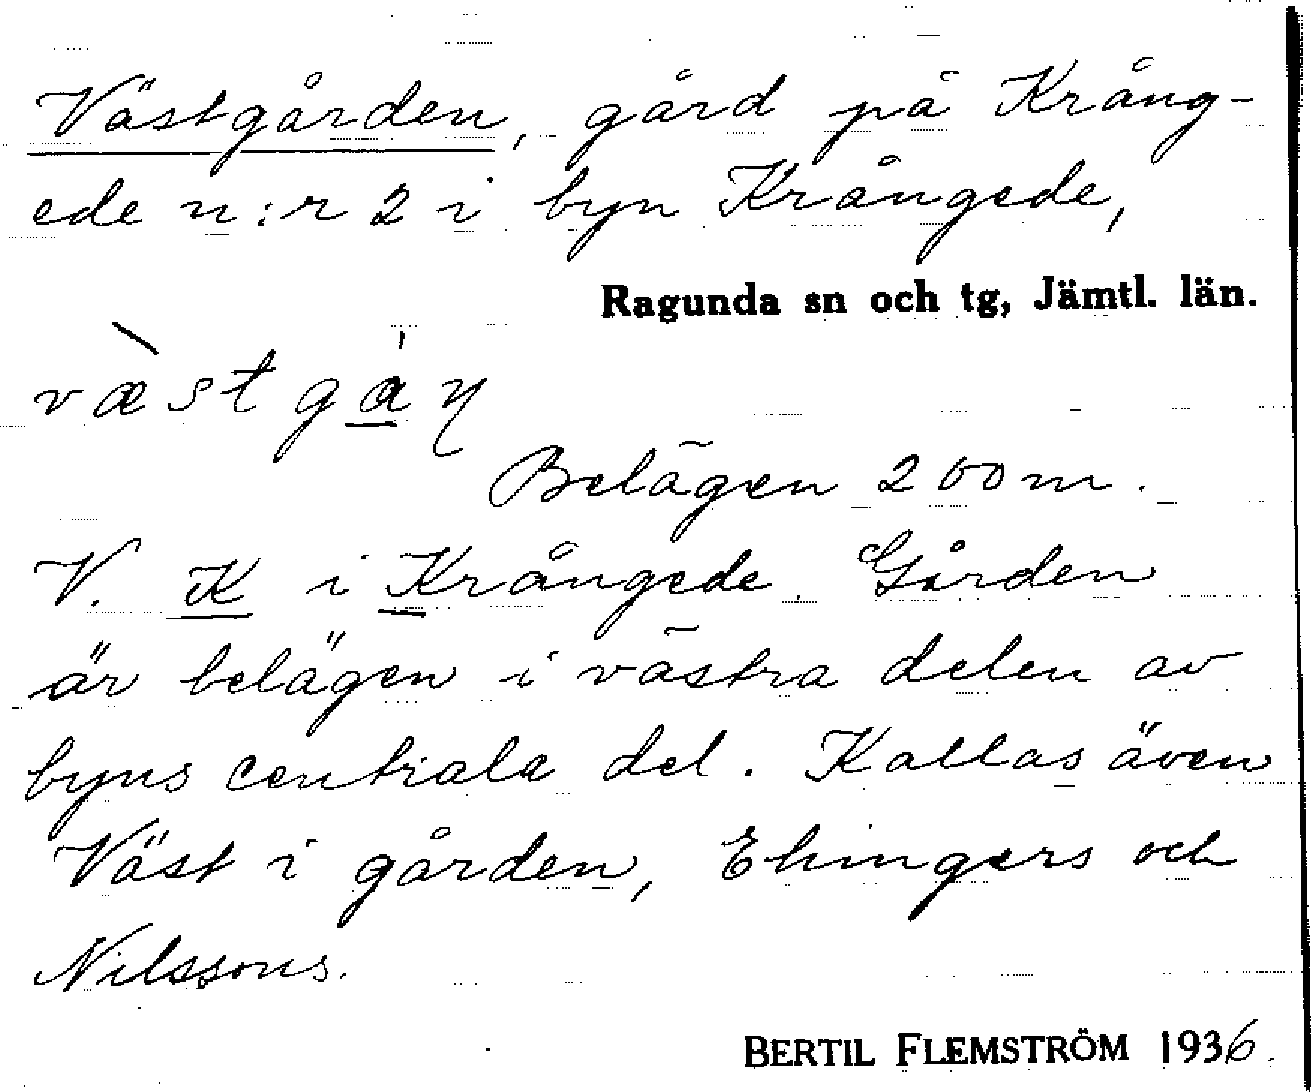 Västgården, gård på Krång-
ede n:r 2 i byn Krångede,
Ragunda sn och tg, Jämtl. län.
væ̀stgá̱ꞃ
Belägen 200 m.
V. K i Krångede. Gården
är belägen i västra delen av
byns centrala del. Kallas även
Väst i gården, Ehingers och
Nilssons.
BERTIL FLEMSTRÖM 1936.